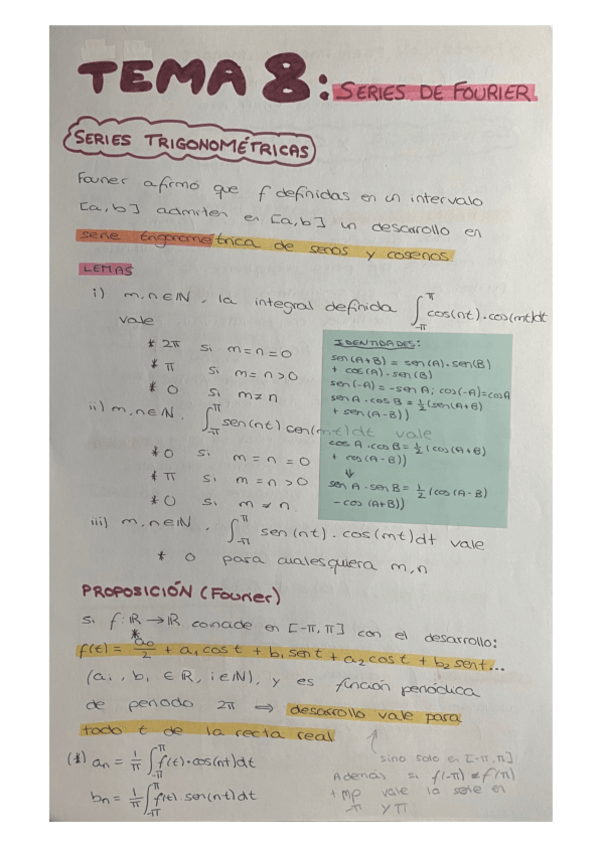 TEMA 8: SERIES DE FOURIER
SERIES TRIGONOMÉTRICAS
Fourier afirmó que f definidas en un intervalo
[a,b] admiten en [a,b] un desarrollo en
serie trigonométrica de senos y cosenos.
LEMAS
i) m,n∈ℕ, la integral definida ∫_{-π}^{π} cos(nt).cos(mt)dt
vale
* 2π si m=n=0
* π si m=n>0
* 0 si m≠n
ii) m,n∈ℕ. ∫_{-π}^{π} sen(nt) cen(mt)dt vale
* 0 si m=n=0
* π si m=n>0
* 0 si m≠n.
IDENTIDADES:
sen(A+B) = sen(A).sen(B)
+ cos(A).sen(B)
sen(-A) = -sen A; cos(-A)=cosA
sen A.cos B = 1/2 (sen(A+B)
+ sen(A-B))
cos A.cos B = 1/2 (cos(A+B)
+ cos(A-B))
↓
sen A.sen B = 1/2 (cos(A-B)
-cos(A+B))
iii) m,n∈ℕ, ∫_{-π}^{π} sen(nt).cos(mt)dt vale
* 0 para cualesquiera m,n
PROPOSICIÓN (Fourier)
si f:ℝ→ℝ coincide en [-π,π] con el desarrollo:
*
f(t) = a₀/2 + a₁ cos t + b₁ sen t + a₂ cos t + b₂ sen t...
(aᵢ, bᵢ ∈ ℝ, i∈ℕ), y es función periódica
de periodo 2π ⇒ desarrollo vale para
todo t de la recta real
(*) aₙ = 1/π ∫_{-π}^{π} f(t).cos(nt)dt
bₙ = 1/π ∫_{-π}^{π} f(t).sen(nt)dt
sino solo en [-π,π]
Además si f(-π) ≠ f(π)
vale la serie en
-π y π